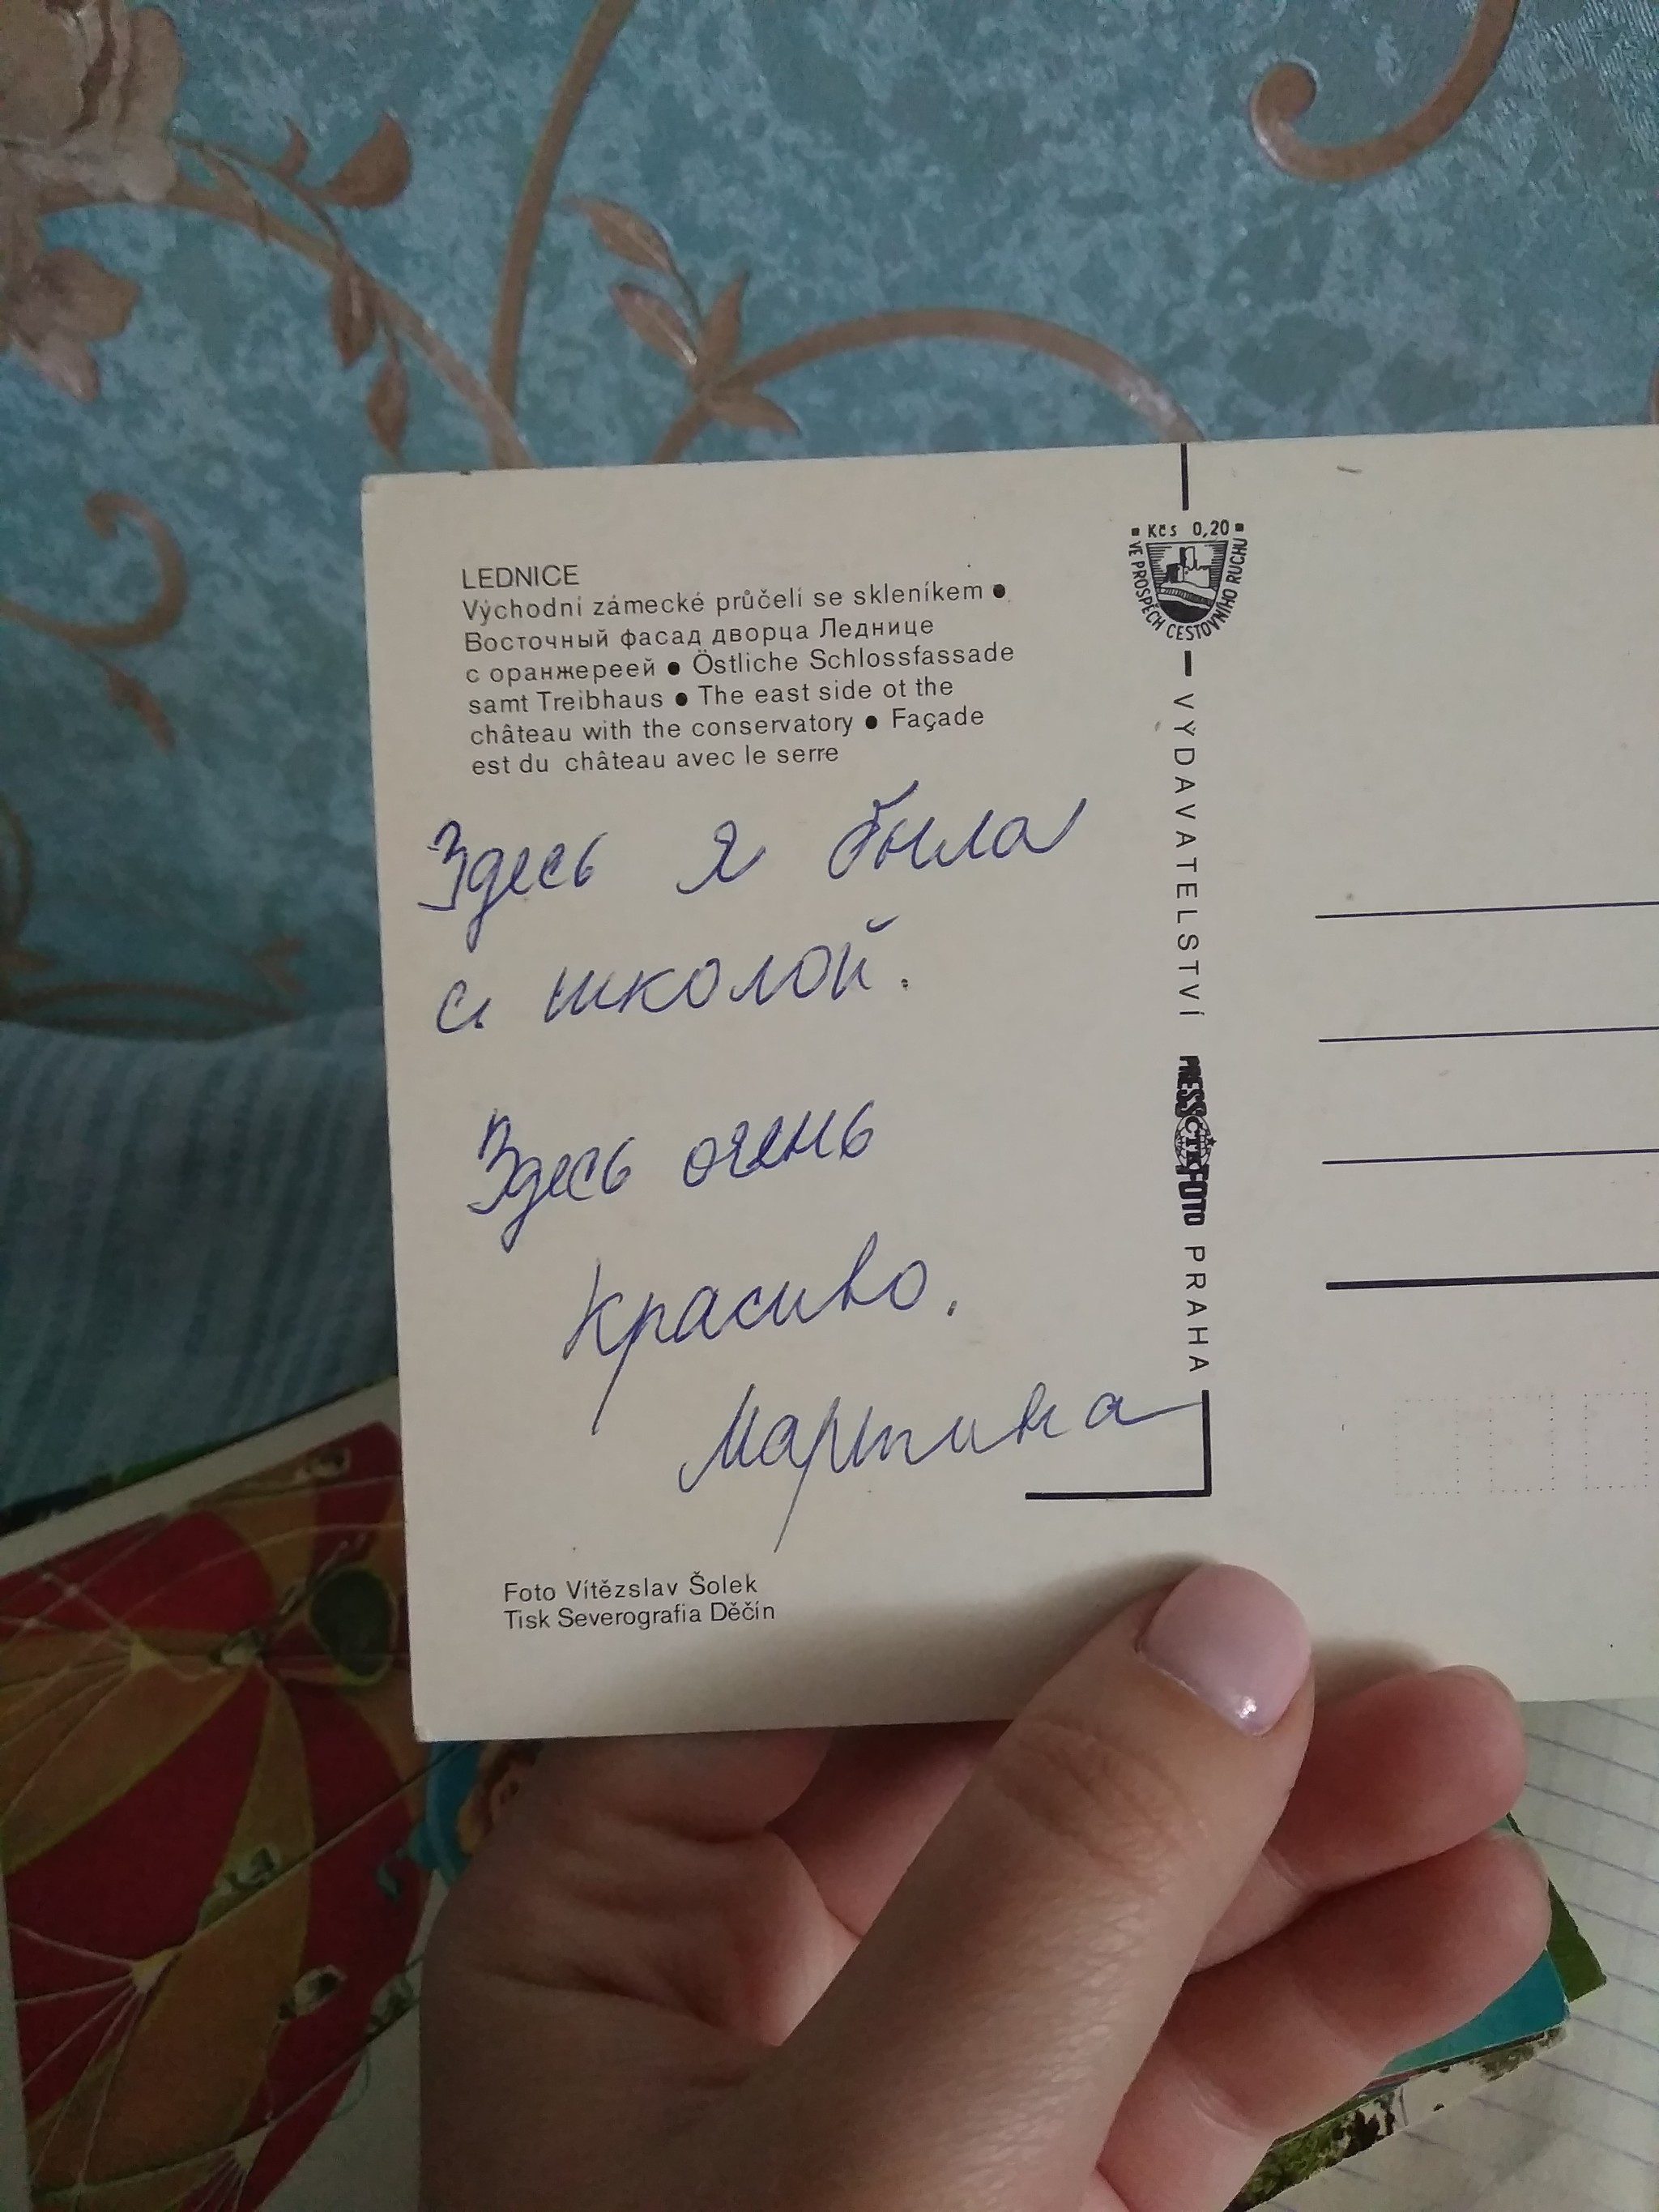 LEDNICE
Východní zámecké průčelí se skleníkem ●
Восточный фасад дворца Леднице
с оранжереей ● Östliche Schlossfassade
samt Treibhaus ● The east side ot the
château with the conservatory ● Façade
est du château avec le serre
Здесь я была
с школой.
Здесь очень
красиво.
Мартина
Foto Vítězslav Šolek
Tisk Severografia Děčín
Kčs 0,20
VE PROSPĚCH CESTOVNÍHO RUCHU
VYDAVATELSTVÍ PRESSČTKFOTO PRAHA